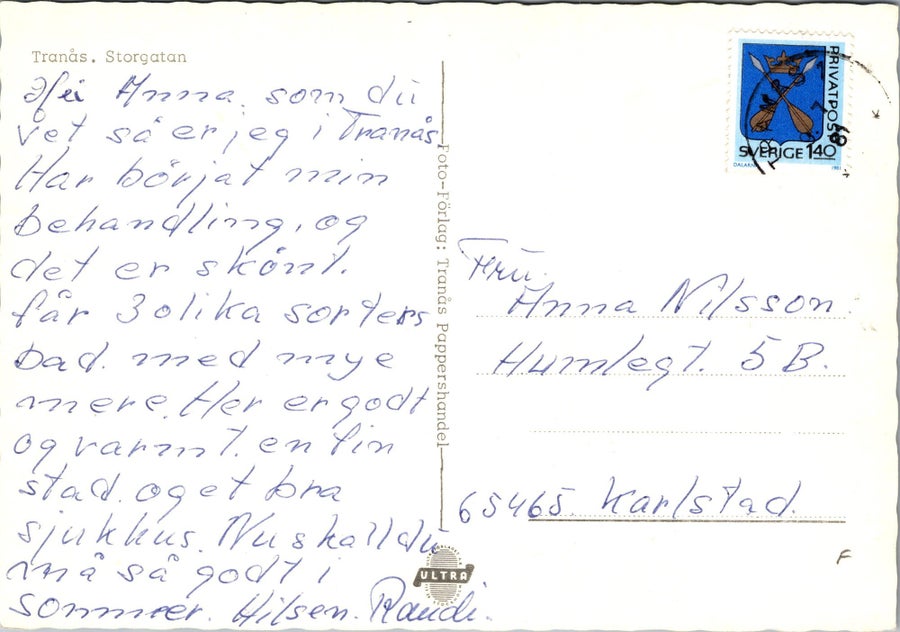 Tranås. Storgatan
Hei Anna, som du
vet så er jeg i Tranås
Har börjat min
behandling, og
det er skönt.
får 3 olika sorters
bad. med mye
mere. Her er godt
og varmt. en fin
stad. og et bra
sjukhus. Nu skall du
må så godt i
sommer. Hilsen. Randi.
Foto-Förlag: Tranås Pappershandel
ULTRA
PRIVATPOST
SVERIGE 140
DALARNA 1981
Fru.
Anna Nilsson.
Humlegt. 5 B.
65465. Karlstad.
F